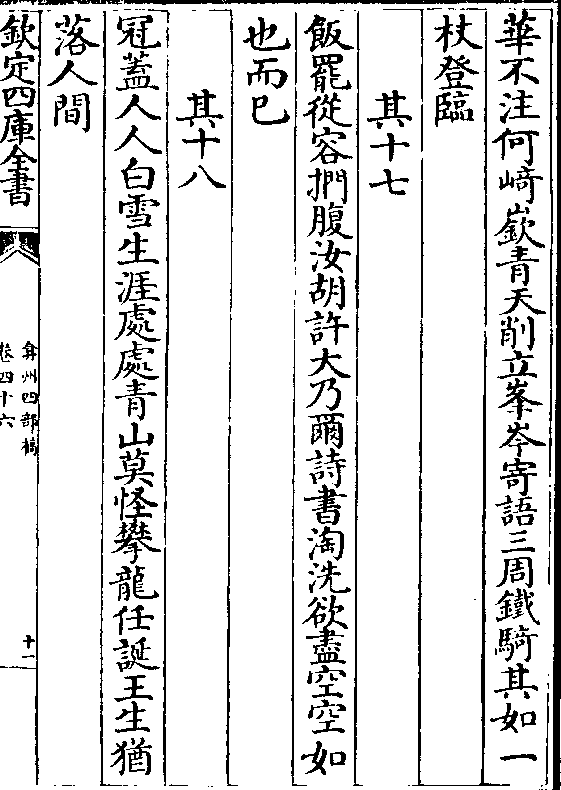 華不注何﨑嶔青天削立峯岑寄語三周鐵騎其如一
杖登臨
其十七
飯罷從容捫腹汝胡許大乃爾詩書淘洗欲盡空空如
也而已
其十八
冠蓋人人白雪生涯處處青山莫怪攀龍任誕王生猶
落人間
欽定四庫全書
弇州四部稿
卷四十六
十一